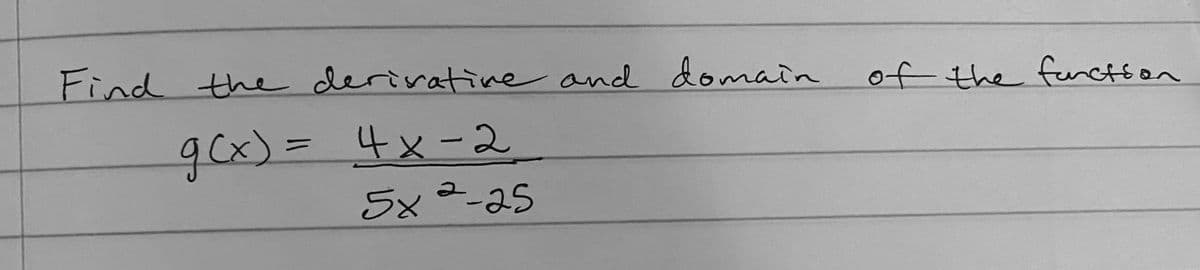 Find the derivative and domain of the function
g(x) = 4x-2
5x²-25